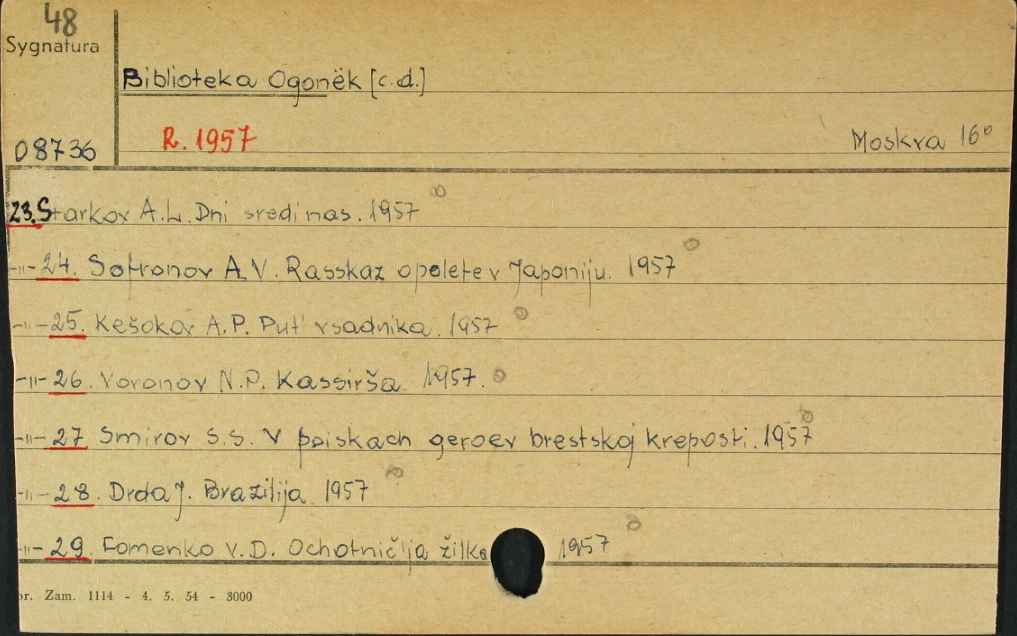 48
Sygnatura
Biblioteka Ogonëk [c.d.]
08736
R. 1957
Moskva 16°
23. Starkov A.L. Dni sredi nas. 1957
-"- 24. Sofronov A.V. Rasskaz opolete v Japoniju. 1957
-"- 25. Kešokov A.P. Put' vsadnika. 1957
-"- 26. Voronov N.P. Kassirša. 1957.
-"- 27 Smirov S.S. V poiskach geroev brestskoj kreposti. 1957
-"- 28. Drda J. Brazilija. 1957
-"- 29. Fomenko V.D. Ochotnič'ja žilka 1957
r. Zam. 1114 - 4. 5. 54 - 3000